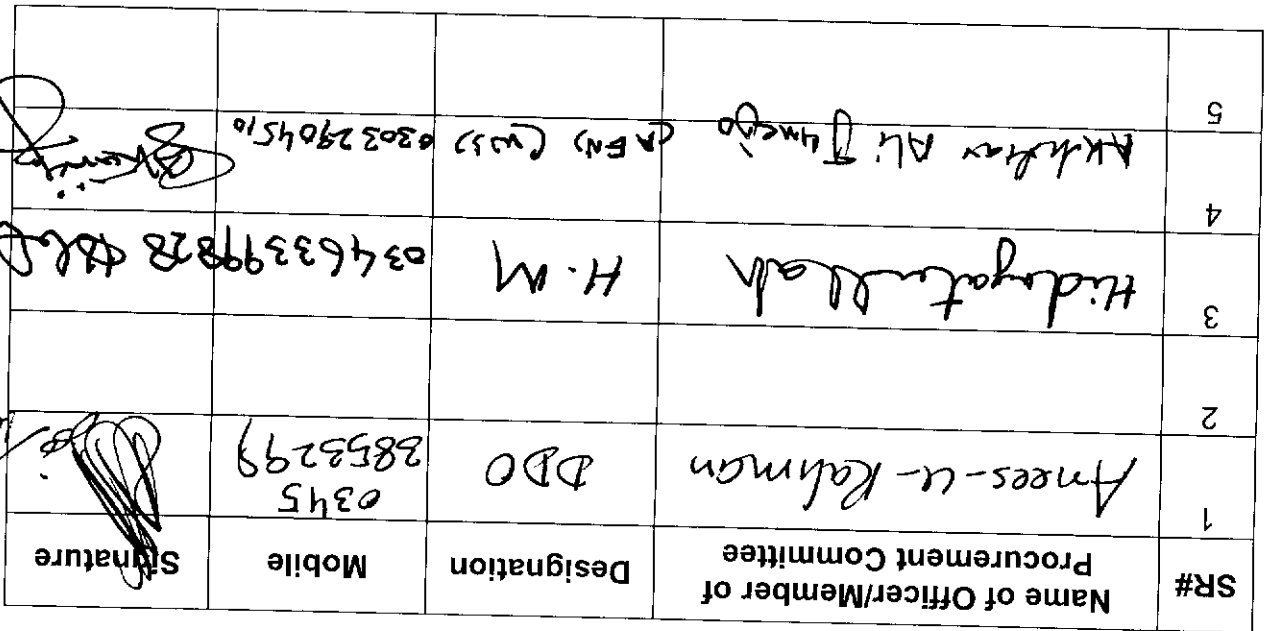 SR# Name of Officer/Member of Procurement Committee Designation Mobile Signature
1 Anees-u-Rahman DDO 0345 3853299
2
3 Hidayatullah H.M 03463399828
4 Akhtar Ali Junejo (AEN) 03032904510
5